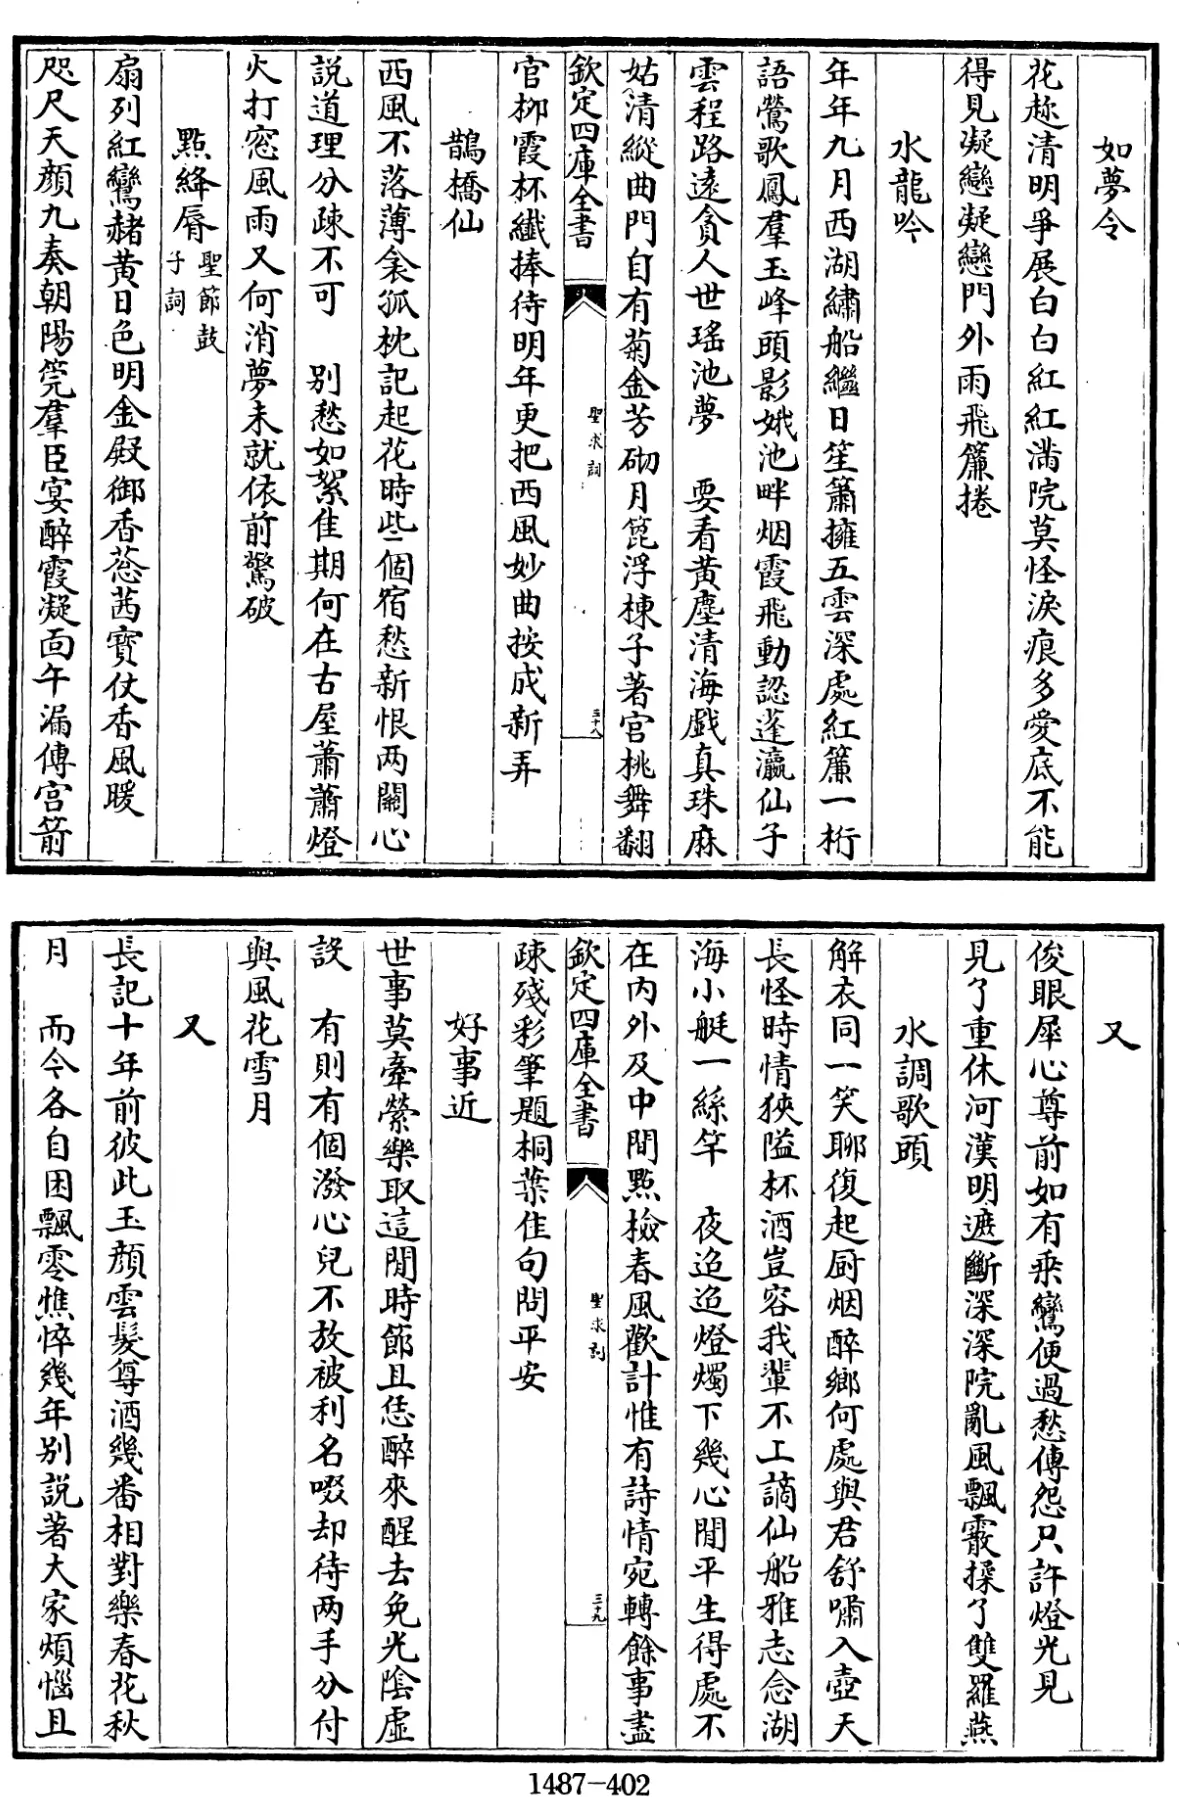 如夢令
花趂清明爭展白白紅紅滿院莫怪淚痕多愛底不能
得見凝戀凝戀門外雨飛簾捲
水龍吟
年年九月西湖繡船繼日笙簫擁五雲深處紅簾一桁
語鶯歌鳳羣玉峰頭影娥池畔烟霞飛動認蓬瀛仙子
雲程路遠貪人世瑤池夢 要看黄塵清海戯真珠麻
姑清縱曲門自有菊金芳砌月篦浮棟子著宫桃舞翻
欽定四庫全書
聖求詞
三十八
官栁霞杯纎捧待明年更把西風妙曲按成新弄
鵲橋仙
西風不落薄衾孤枕記起花時些個宿愁新恨两關心
説道理分疎不可 别愁如絮佳期何在古屋蕭蕭燈
火打窓風雨又何消夢未就依前驚破
點絳脣聖節鼓
子詞
扇列紅鸞赭黄日色明金殿御香葱茜寳仗香風暖
咫尺天顔九奏朝陽筦羣臣宴醉霞凝面午漏傳宫箭
又
俊眼犀心尊前如有乗鸞便過愁傳怨只許燈光見
見了重休河漢明遮斷深深院亂風飄霰揉了雙羅燕
水調歌頭
解衣同一笑聊復起厨烟醉鄉何處與君舒嘯入壺天
長怪時情狹隘杯酒豈容我輩不上謫仙船雅志念湖
海小艇一絲竿 夜迢迢燈燭下幾心閒平生得處不
在内外及中間點檢春風歡計惟有詩情宛轉餘事盡
欽定四庫全書
聖求詞
三十九
疎殘彩筆題桐葉佳句問平安
好事近
世事莫牽縈樂取這閒時節且恁醉來醒去免光陰虚
設 有則有個潑心兒不放被利名啜却待两手分付
與風花雪月
又
長記十年前彼此玉顔雲髮尊酒幾番相對樂春花秋
月 而今各自困飄零憔悴幾年别説著大家煩惱且
1487-402